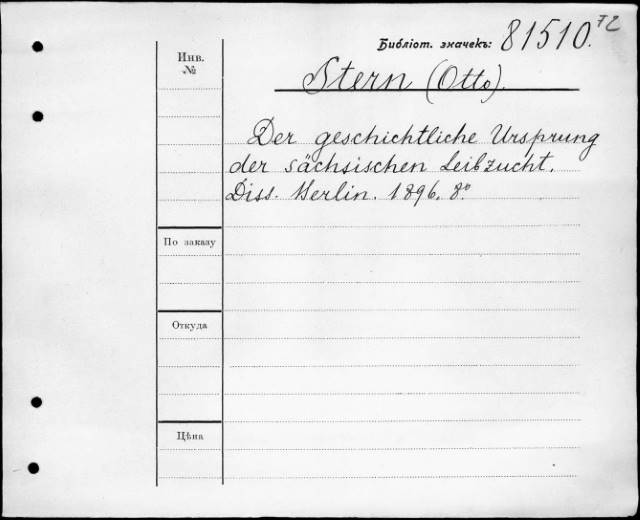 Библіот. значекъ: 81510.72
Инв. №
Stern (Otto).
Der geschichtliche Ursprung
der sächsischen Leibzucht.
Diss. Berlin. 1896. 8º
По заказу
Откуда
Цѣна